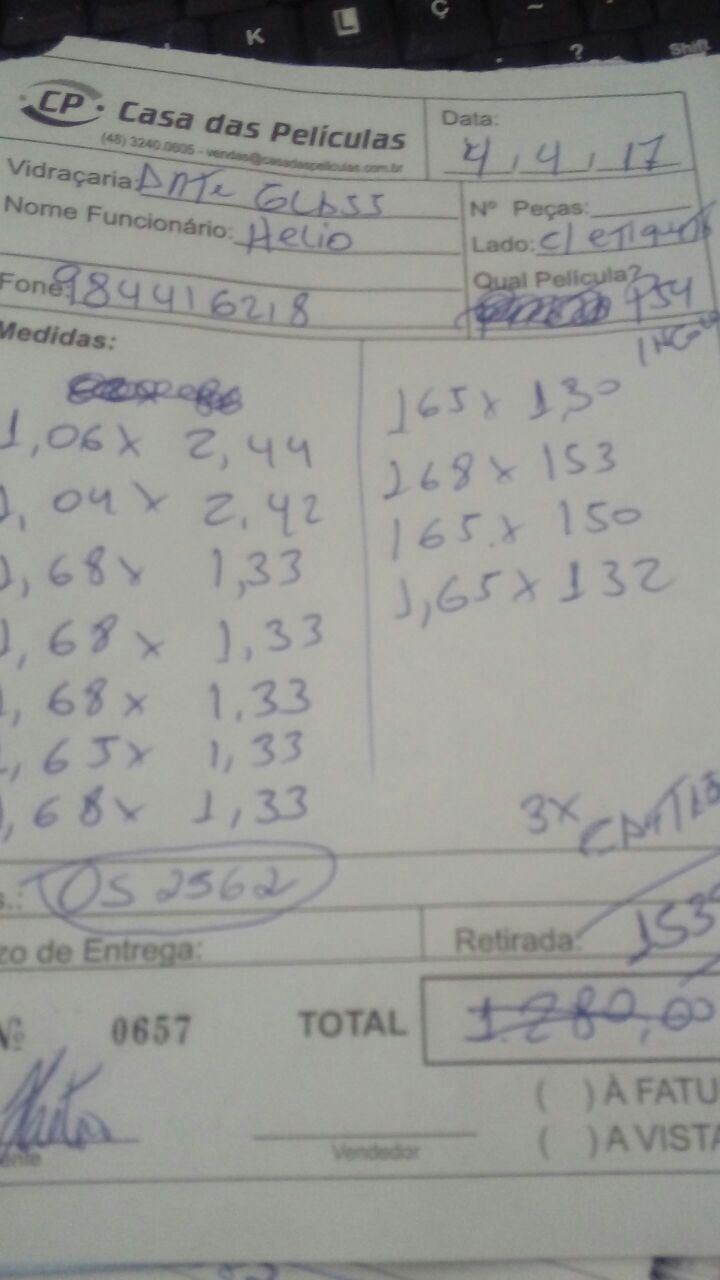 K L Ç ~
? Shift
CP Casa das Películas
(48) 3240.0605 - vendas@casadaspeliculas.com.br
Data:
4, 4, 17
Vidraçaria: GLASS
Nome Funcionário: Helio
Fone: 984416218
Nº Peças:
Lado: c/
Qual Película? PS4
Medidas:
1,06 x 2,44
1,04 x 2,42
1,68 x 1,33
1,68 x 1,33
1,68 x 1,33
1,65 x 1,33
1,68 x 1,33
165 x 1,30
168 x 153
165 x 150
1,65 x 132
3x
s.: OS 2562
zo de Entrega:
Retirada: 153
Nº 0657
TOTAL
1.280,00
( ) À FATU
( ) A VISTA
Vendedor